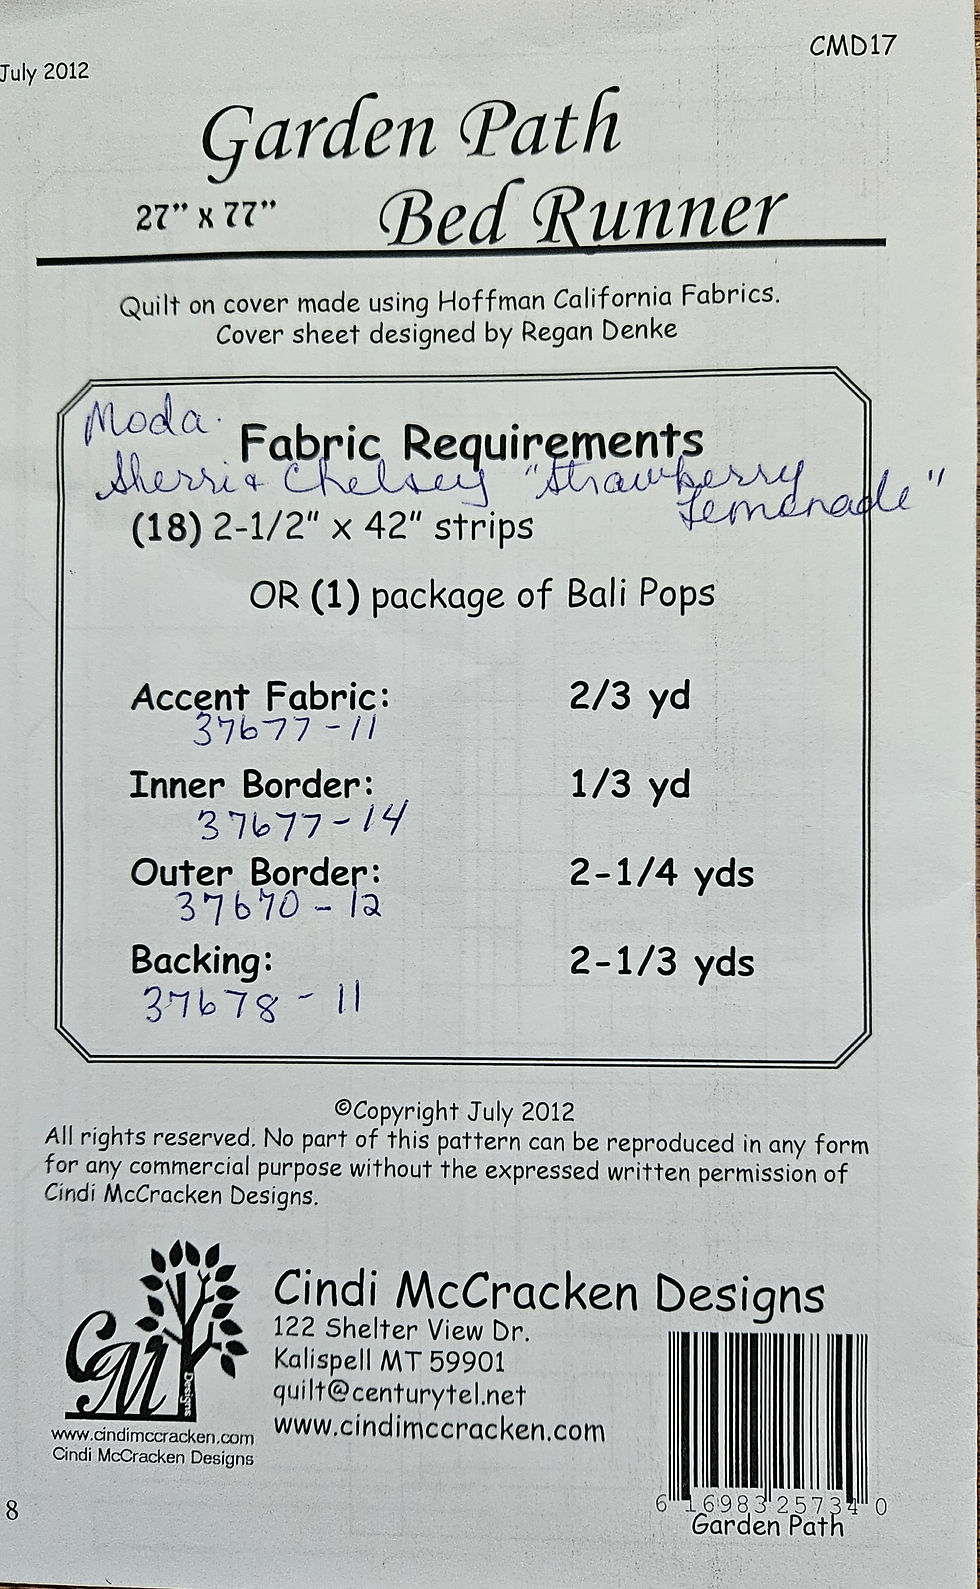 CMD17
July 2012
Garden Path
27" x 77" Bed Runner
Quilt on cover made using Hoffman California Fabrics.
Cover sheet designed by Regan Denke
Moda.
Fabric Requirements
Sherri & Chelsey "Strawberry
Lemonade"
(18) 2-1/2" x 42" strips
OR (1) package of Bali Pops
Accent Fabric: 2/3 yd
37677-11
Inner Border: 1/3 yd
37677-14
Outer Border: 2-1/4 yds
37670-12
Backing: 2-1/3 yds
37678-11
©Copyright July 2012
All rights reserved. No part of this pattern can be reproduced in any form
for any commercial purpose without the expressed written permission of
Cindi McCracken Designs.
Cindi McCracken Designs
122 Shelter View Dr.
Kalispell MT 59901
quilt@centurytel.net
www.cindimccracken.com
CM
Designs
www.cindimccracken.com
Cindi McCracken Designs
6 16983 25734 0
Garden Path
8